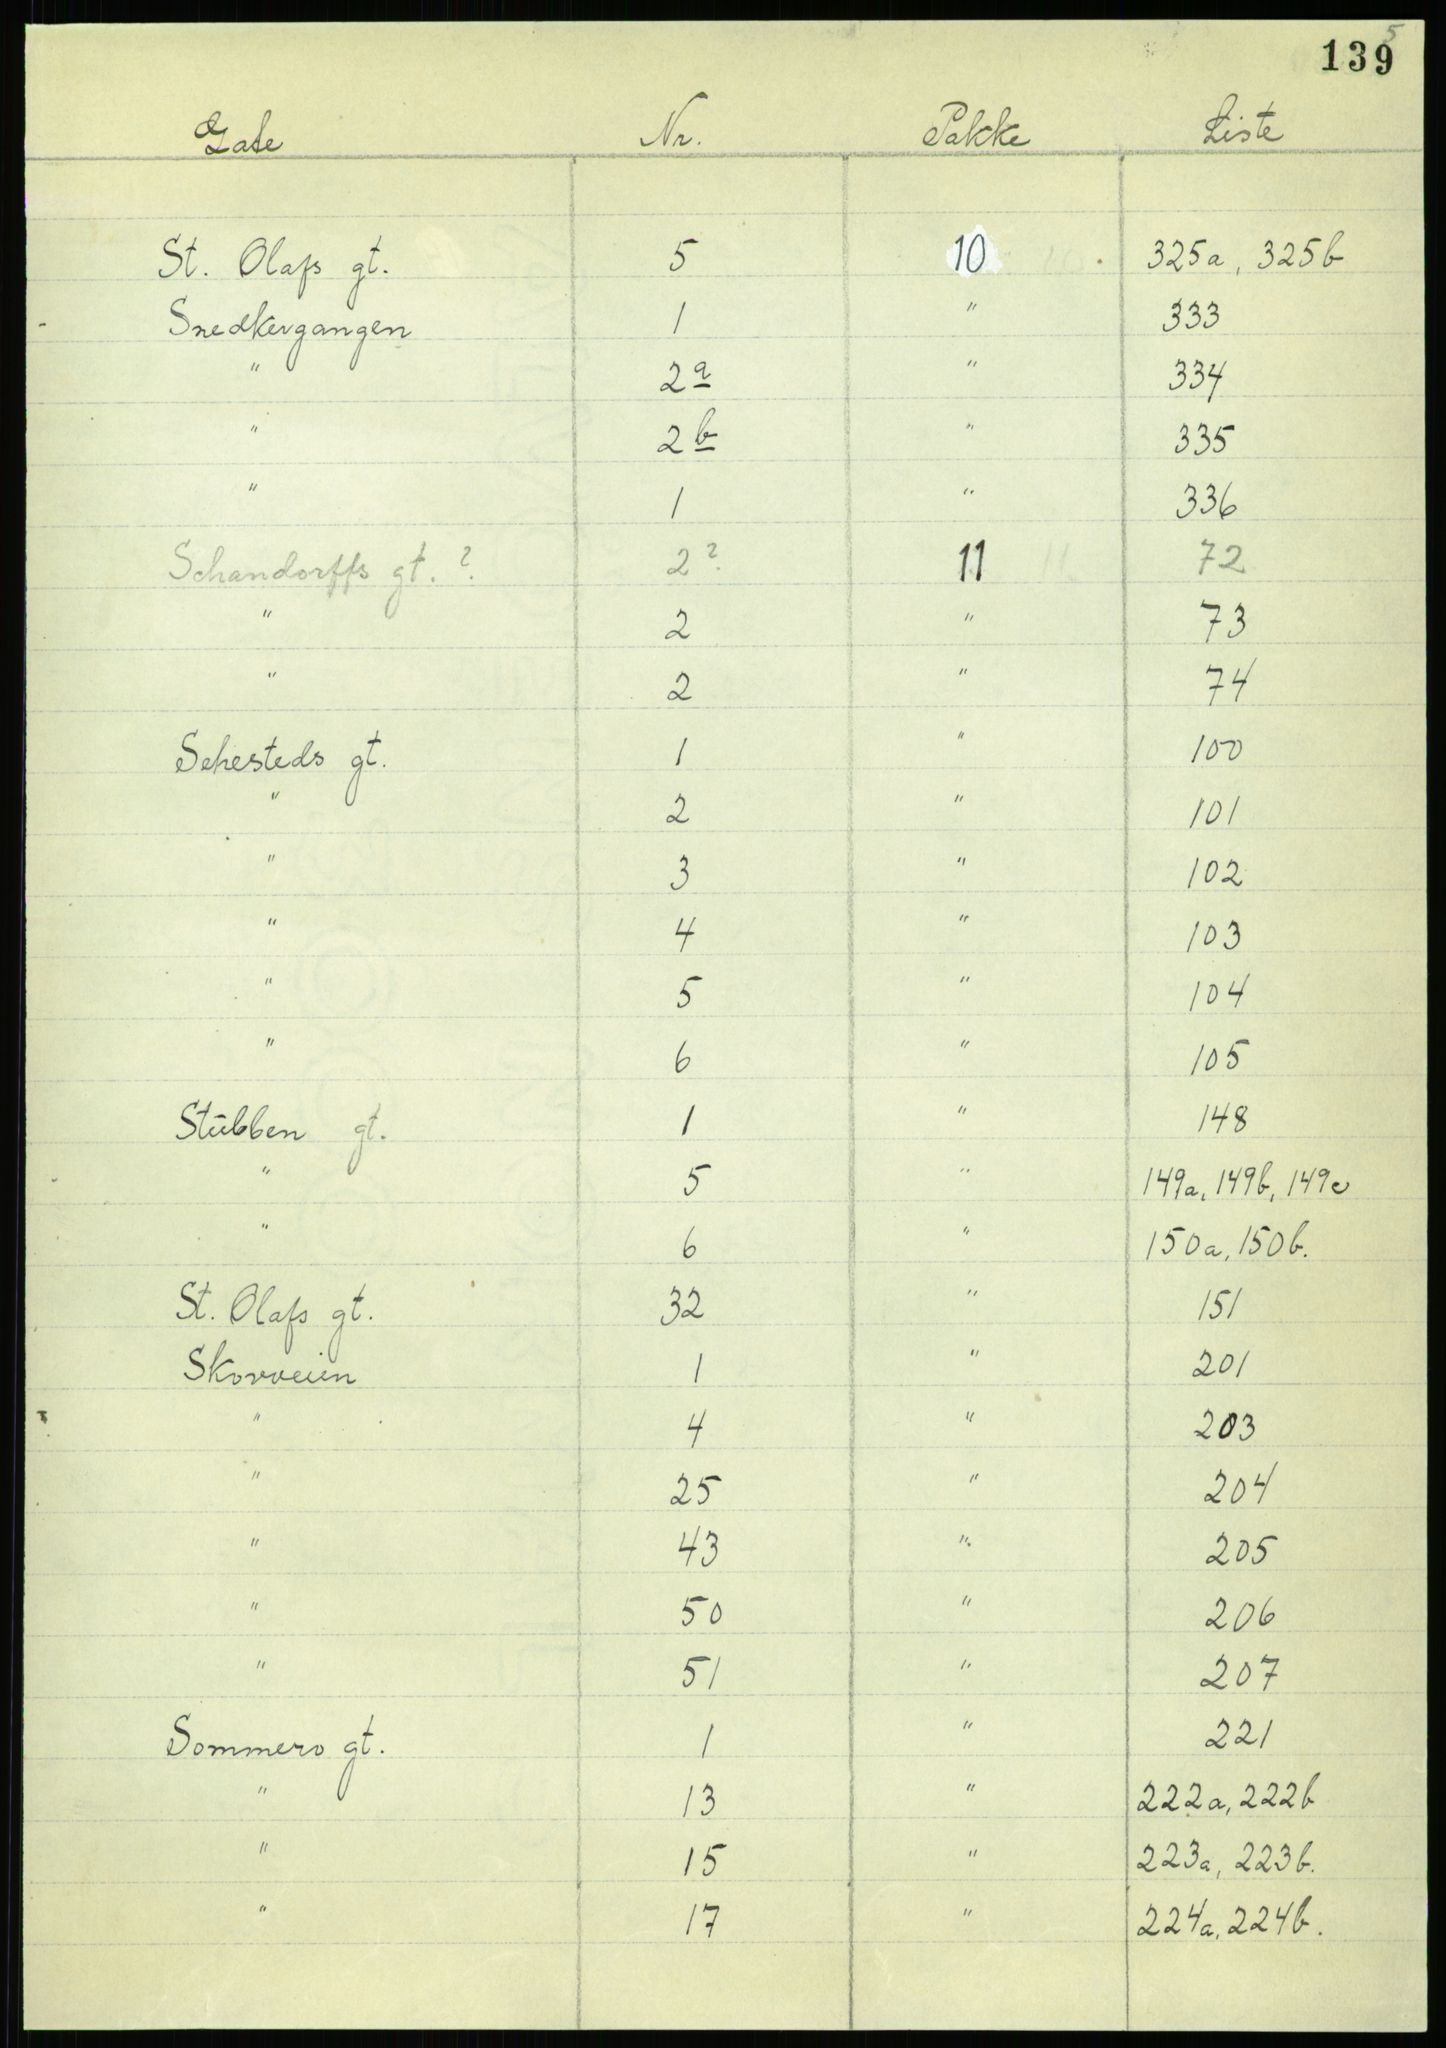 139
5
Gate Nr. Pakke Liste
St. Olafs gt. 5 10 325a, 325b
Snedkergangen 1 " 333
" 2a " 334
" 2b " 335
" 1 " 336
Schandorffs gt. ? 2? 11 11 72
" 2 " 73
" 2 " 74
Sehesteds gt. 1 " 100
" 2 " 101
" 3 " 102
" 4 " 103
" 5 " 104
" 6 " 105
Stübben gt. 1 " 148
" 5 " 149a, 149b, 149c
" 6 " 150a, 150b.
St. Olafs gt. 32 " 151
Skovveien 1 " 201
" 4 " 203
" 25 " 204
" 43 " 205
" 50 " 206
" 51 " 207
Sommero gt. 1 " 221
" 13 " 222a, 222b
" 15 " 223a, 223b.
" 17 " 224a, 224b.